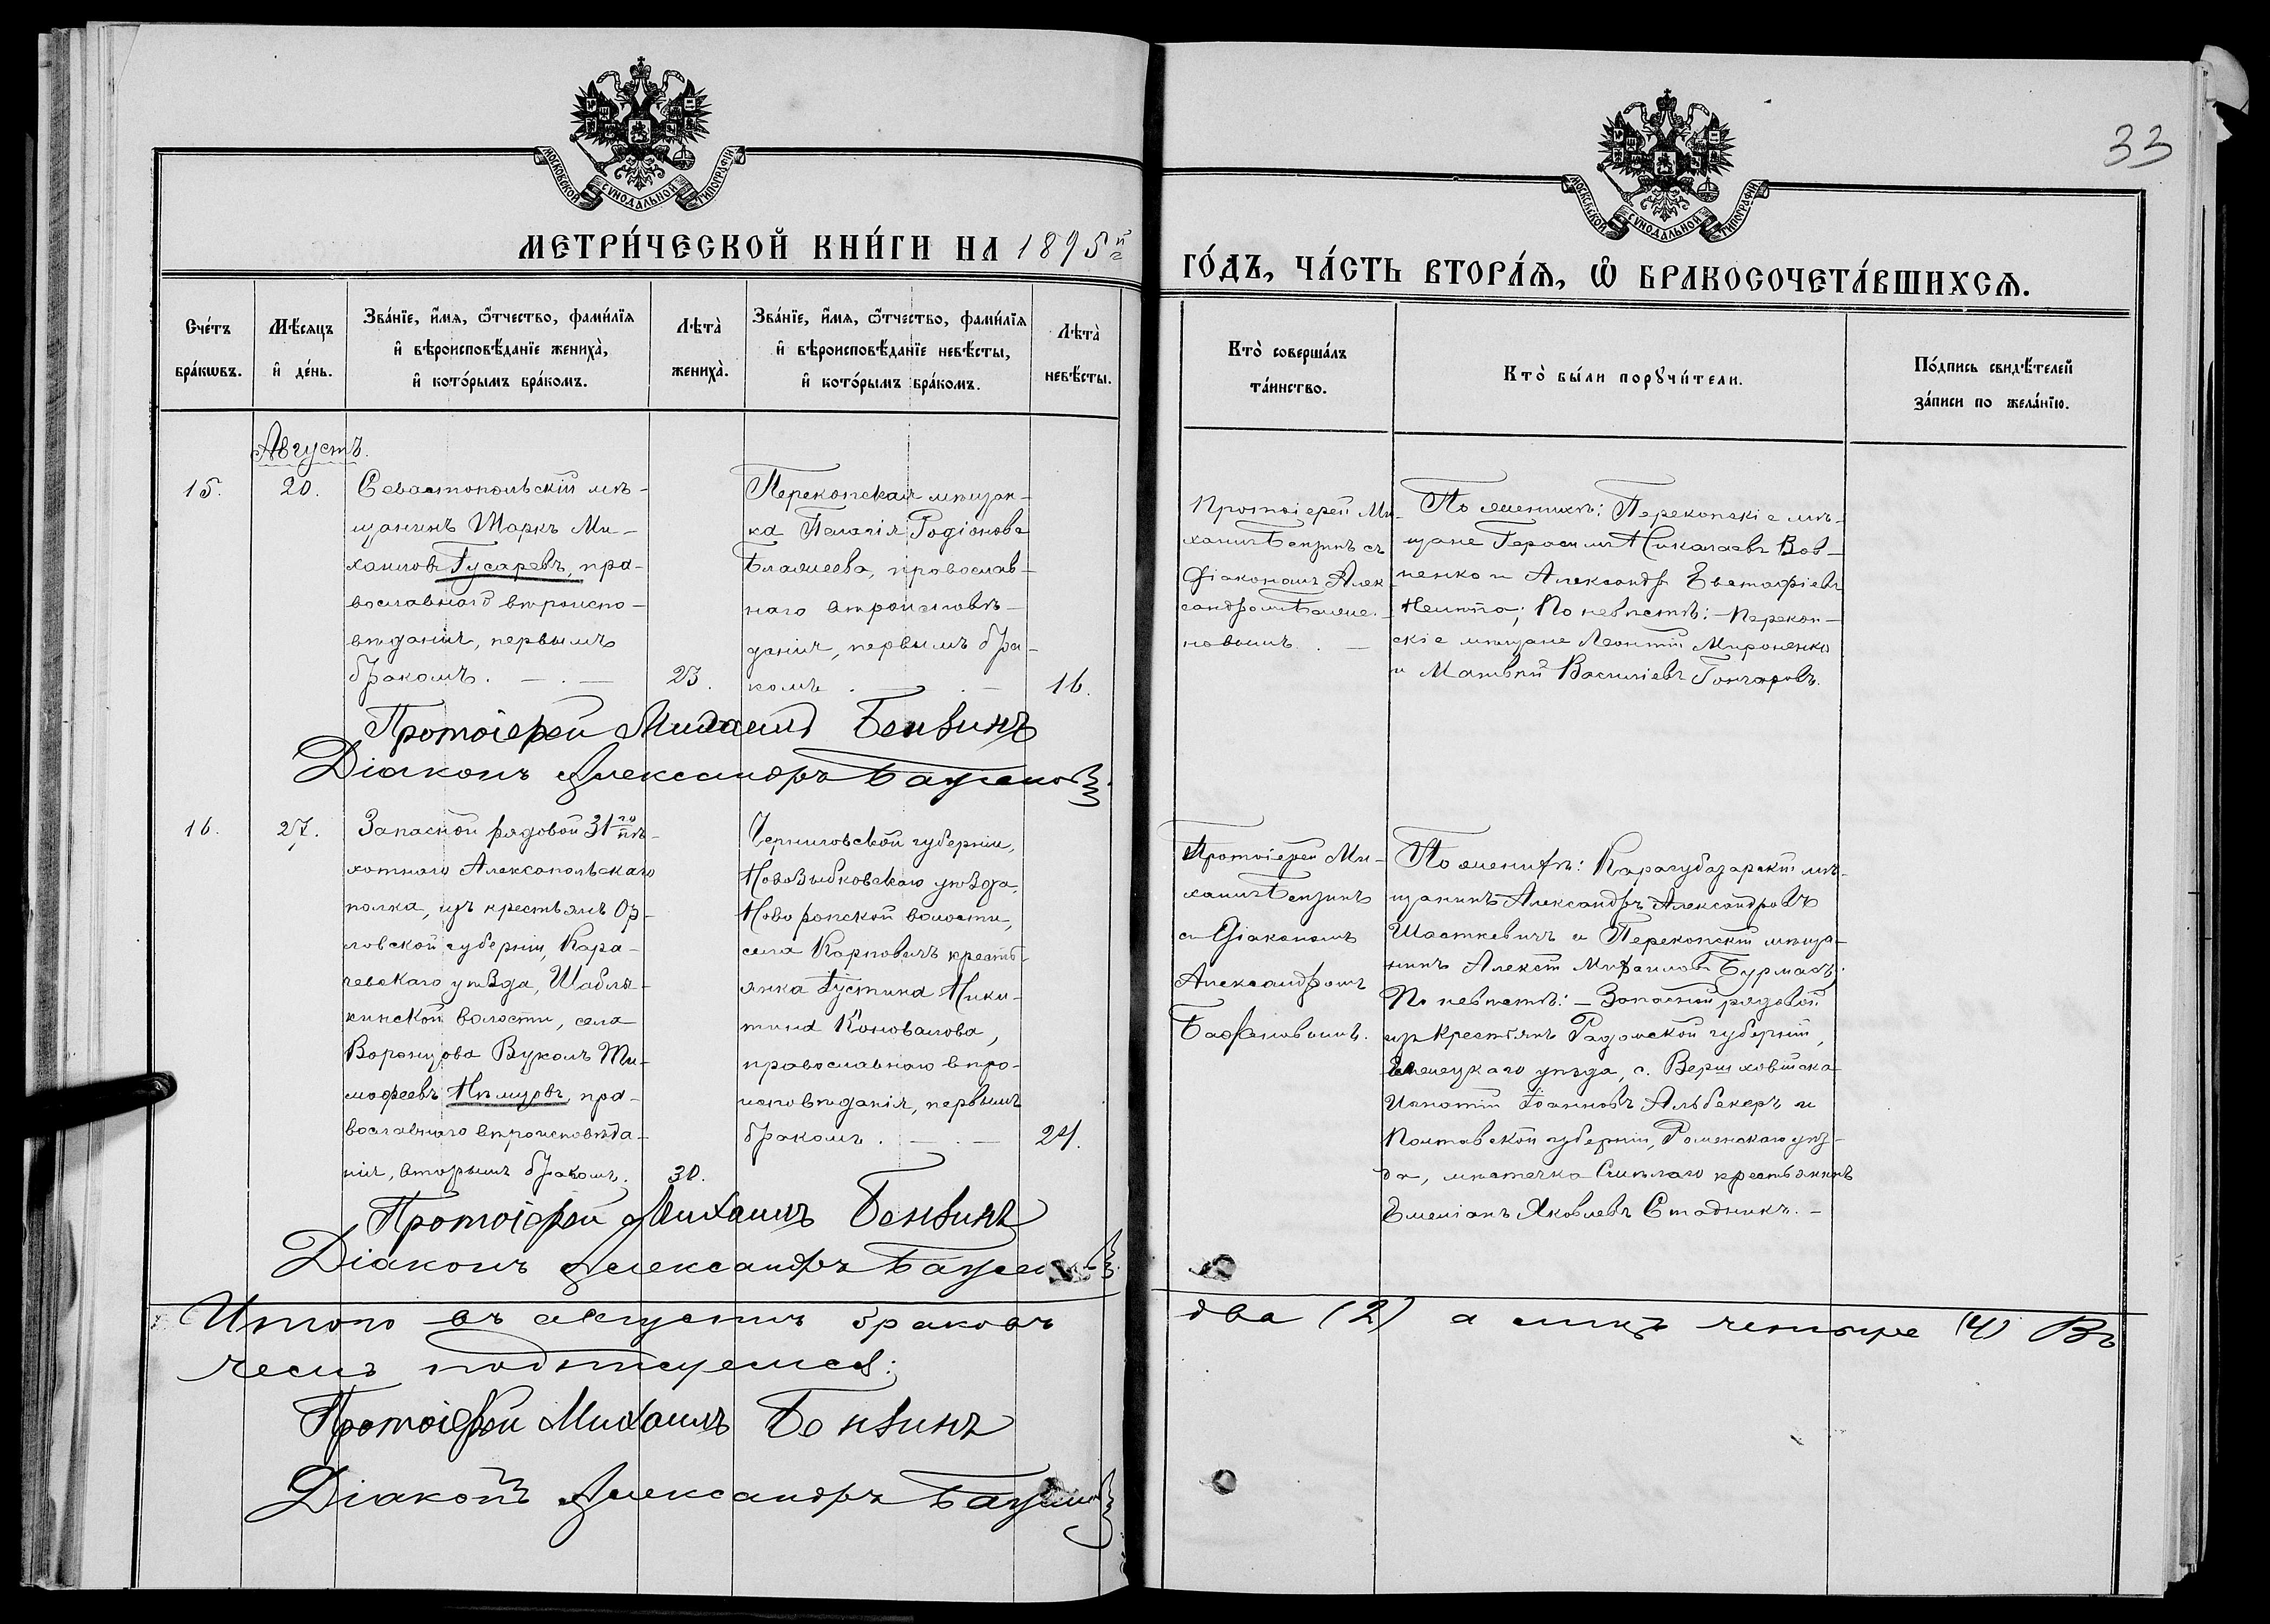 МОСКОВСКОЙ СѴНОДАЛЬНОЙ ТИПОГРАФІИ
МОСКОВСКОЙ СѴНОДАЛЬНОЙ ТИПОГРАФІИ
33
МЕТРИ́ЧЕСКОЙ КНИ́ГИ НА 1895 й г
ГО́ДЪ, ЧА́СТЬ ВТОРА́Ѧ, Ѿ БРАКОСОЧЕТА́ВШИХСѦ.
Сче́тъ
бра́кѡвъ.
Мѣ́сяцъ
и҆ де́нь.
Зва́нїе, и҆́мѧ, ѻ҆́тчество, фами́лїѧ
и҆ вѣроисповѣ́данїе жениха̀,
и҆ кото́рымъ бра́комъ.
Лѣта̀
жениха̀.
Зва́нїе, и҆́мѧ, ѻ҆́тчество, фами́лїѧ
и҆ вѣроисповѣ́данїе невѣ́сты,
и҆ кото́рымъ бра́комъ.
Лѣта̀
невѣ́сты.
Кто̀ соверша́лъ
та́инство.
Кто̀ бы́ли порꙋчи́тели.
По́дпись свидѣ́телей
за́писи по жела́нїю.
Августъ.
15.
20.
Севастопольскій мѣ-
щанинъ Маркъ Ми-
хаиловъ Гусаревъ, пра-
вославнаго вѣроиспо-
вѣданія, первымъ
бракомъ. — . —
23.
Перекопская мѣщан-
ка Пелагія Родіонова
православ-
наго вѣроисповѣ-
данія, первымъ бра-
комъ . — . —
16.
Протоіерей Ми-
хаилъ Бензинъ съ
Діакономъ Алек
сандромъ Баже-
новымъ . —
По женихѣ: Перекопскіе мѣ-
щане Герасимъ Николаевъ Вов-
ненко и Александръ Евстафіевъ
По невѣстѣ: - Перекоп-
скіе мѣщане Леонтій Мироненко
и Матвѣй Василіевъ Гончаровъ.
Протоіерей Михаилъ Бензинъ
Діаконъ Александръ Баженовъ.
16.
27.
Запасной рядовой 31го пѣ-
хотнаго Алексопольскаго
полка, изъ крестьянъ Ор-
ловской губерніи, Кара-
чевскаго уѣзда, Шаблы-
кинской волости, села
Воронцова Вуколъ Ти-
мофеевъ Нѣмцовъ, пра-
вославнаго вѣроисповѣда-
нія, вторымъ бракомъ.
30.
Черниговской губерніи,
Новозыбковскаго уѣзда,
Новоропской волости,
села Карповичъ кресть-
янка Іустина Ники-
тина Коновалова,
православнаго вѣро-
исповѣданія, первымъ
бракомъ . — . —
24.
Протоіерей Ми-
хаилъ Бензинъ
съ Діакономъ
Александромъ
Баженовымъ.
По женихѣ: Карасубазарскій мѣ-
щанинъ Александръ Александровъ
Шасткевичъ и Перекопскій мѣща-
нинъ Алексѣй Михаиловъ Бурмасъ;
По невѣстѣ: - Запасной рядовой
изъ крестьянъ Радомской губерніи,
уѣзда, с.
Игнатій Іоанновъ Альбекеръ и
Полтавской губерніи, Роменскаго уѣз-
да, мѣстечка Смѣлаго крестьянинъ
Емеліанъ Яковлевъ Стадникъ. —
Протоіерей Михаилъ Бензинъ
Діаконъ Александръ Баженовъ
Итого въ августѣ браковъ два (2) а лицъ четыре (4) Въ
чемъ подписуемся:
Протоіерей Михаилъ Бензинъ
Діаконъ Александръ Баженовъ